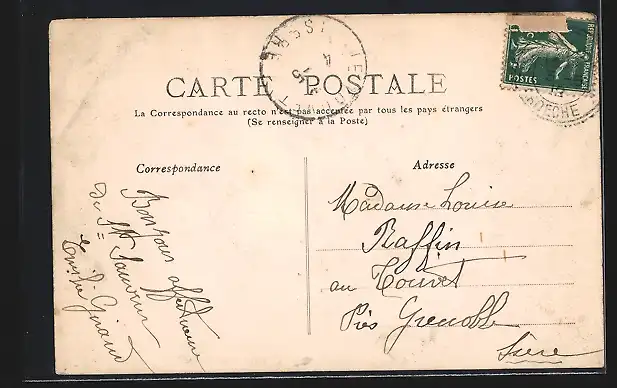 CARTE POSTALE
La Correspondance au recto n'est pas acceptée par tous les pays étrangers
(Se renseigner à la Poste)
Correspondance
Adresse
Bonjour affectueux
de St= Sauveur
Giraud
Madame Louise
Raffin
au Touvet
Près Grenoble
Isère
REPUBLIQUE FRANÇAISE
POSTES
ISERE